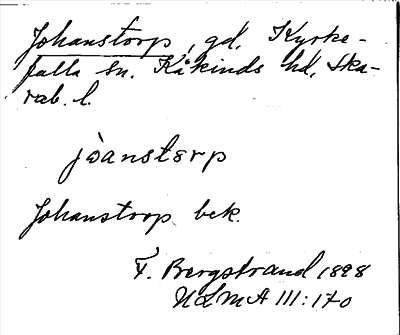 Johanstorp, gd. Kyrke-
falla sn. Kåkinds hd, Ska-
rab. l.
jòanstɛrp
Johanstorp bek.
F. Bergstrand 1898
ULMA III:170